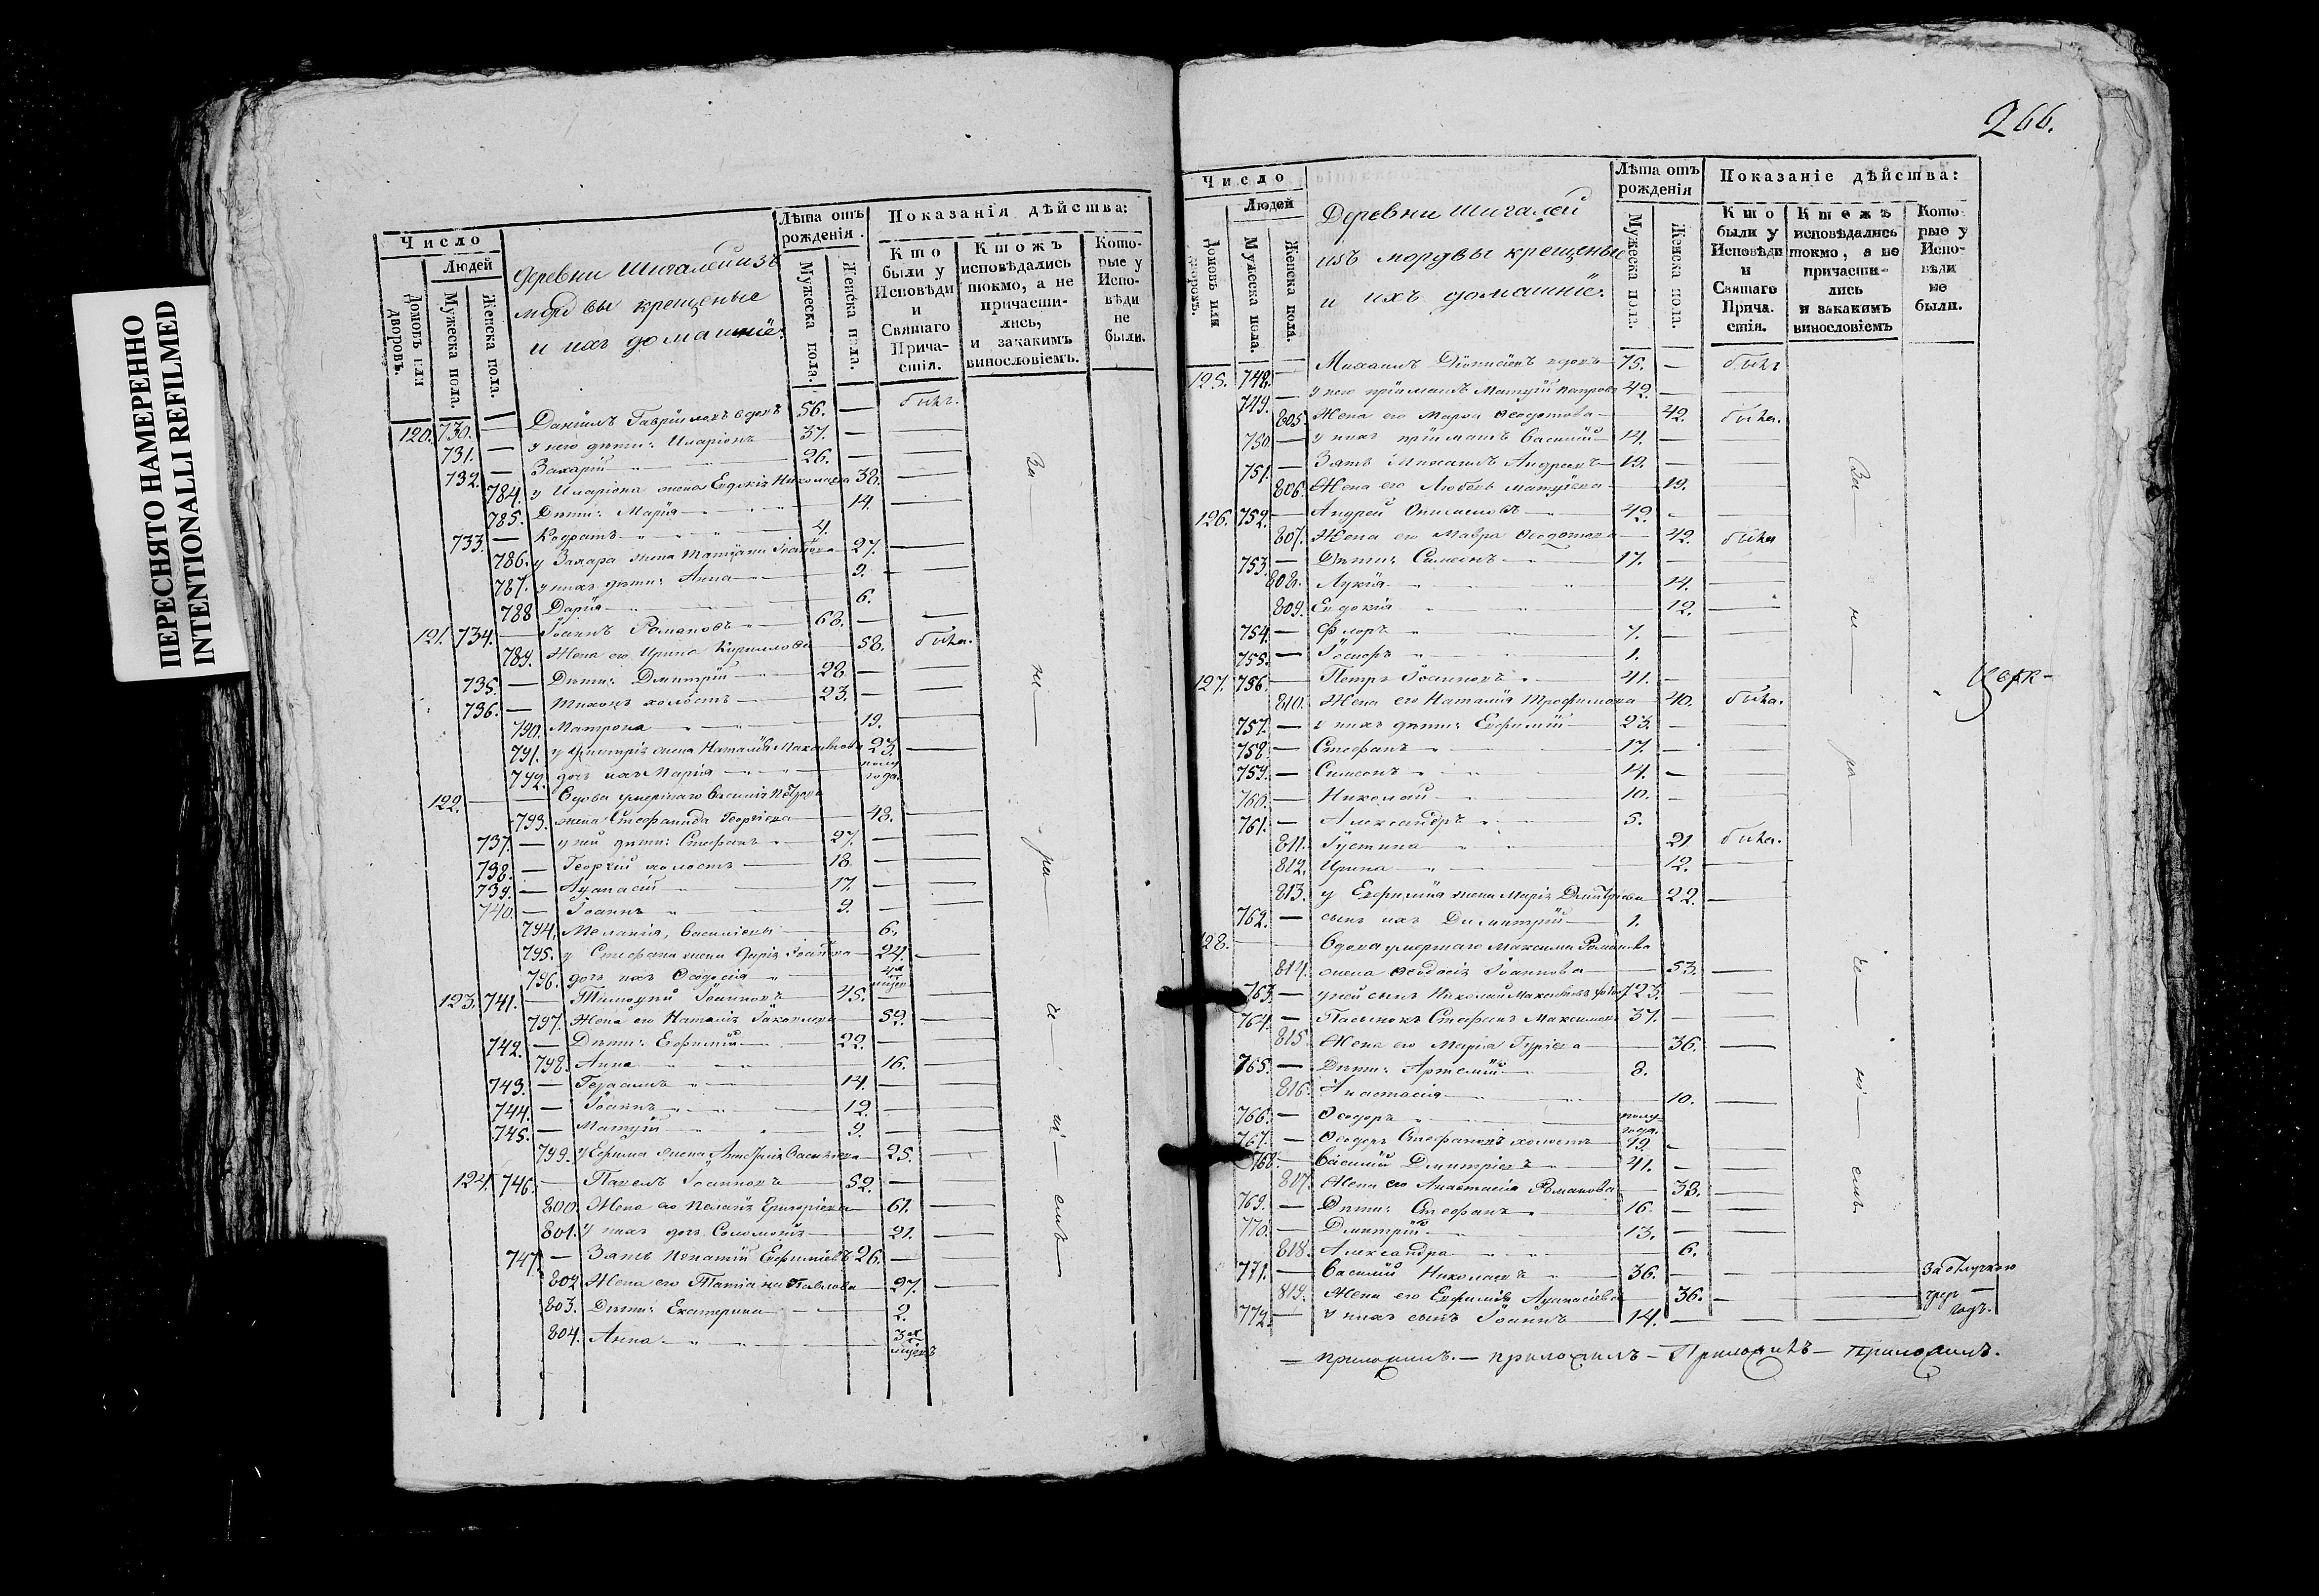 ПЕРЕСНЯТО НАМЕРЕННО
INTENTIONALLI REFILMED
Число
Людей
Домовъ или дворовъ.
Мужеска пола.
Женска пола.
Деревни Шигалей изъ
мордвы крещеные
и ихъ домашніе.
Лѣта отъ рожденія.
Мужеска пола.
Женска пола.
Показанія дѣйства:
Кто были у Исповѣди и Святаго Причастія.
Ктожъ исповѣдались токмо, а не причастились, и закакимъ винословіемъ.
Которые у Исповѣди не были.
120. 730. — Даніилъ Гавріиловъ вдовъ 56. — былъ.
731. — у него дѣти: Иларіонъ 37. —
732. — Захарій 26. —
784. у Иларіона жена Евдокія Николаева 38. —
785. Дѣти: Марія 14. —
733. — Кодратъ 4.
786. у Захара жена Татіана 27. —
787. у нихъ дѣти: Анна 9. —
788 Дарія 6.
121. 734. — Іоаннъ Романовъ 68. — —
789. Жена его Ирина Кириллова 58. была.
735. — Дѣти: Дмитрій 28 — —
736. — Тихонъ холостъ 23. — —
790. Матрона 19. —
791. у Дмитрія жена Наталія Максимова 23. —
792. дочь ихъ Марія полу года.
122. — — Вдова умершаго Василія Петрова
793. жена Стефанида Георгіева 48. —
737. — у ней дѣти: Стефанъ 27. — —
738. — Георгій холостъ 18. — —
739. — Аѳанасій 17. — —
740. — Іоаннъ 9. —
794. Меланія, Василіевы 6.
795. у Стефана жена Дарія 24. —
796. дочь ихъ Ѳеодосія
123. 741. — Тимоѳей Іоанновъ 45. — —
797. Жена его Наталія Іаковлева 52. —
742. — Дѣти: Ефимій 22. — —
798. Анна 16. —
743. — Герасимъ 14. — —
744. — Іоаннъ 12 — —
745. — Матѳій 9. — —
799. у Ефима жена Васильева 25. —
124. 746. — Павелъ Іоанновъ 52. — —
800. Жена его Григоріева 61. —
801. у нихъ дочь Соломонія 21. —
747. — Зять Игнатій Евфиміевъ 26. —
802 Жена его Татіана Павлова 27. —
803. Дѣти: Екатерина 2.
804. Анна
За — не — ра — че — ні — емъ —
266.
Число
Людей
Домовъ или дворовъ.
Мужеска пола.
Женска пола.
Деревни Шигалей
изъ мордвы крещеные
и ихъ домашніе.
Лѣта отъ рожденія
Мужеска пола.
Женска пола.
Показаніе дѣйства:
Кто были у Исповѣди и Святаго Причастія.
Ктожъ исповѣдались токмо, а не причастились и закакимъ винословіемъ
Которые у Исповѣди не были.
125. 748. — Михаилъ вдовъ 75. — былъ
749. — у него пріимашъ Матѳій Петровъ 42. — —
805. Жена его Марѳа Ѳеодотова 42. была.
750. — у нихъ пріимашъ Василій 14. — —
751. — Зять Михаилъ Андреевъ 19. — —
806. Жена его Любовь Матѳіева 19.
126. 752. — Андрей 42. —
807. Жена его Мавра Ѳеодотова 42. была
753. — Дѣти: Симеонъ 17. — —
808. Лукія 14. —
809. Евдокія 12. —
754. — Флоръ 7. — —
755. — Іосифъ 1.
127. 756. — Петръ Іоанновъ 41. —
810. Жена его Наталія Трофимова 40. была.
757. — у нихъ дѣти: Евфимій 23. — —
758. — Стефанъ 17. — —
759. — Симеонъ 14. — —
760. — Николай 10. — —
761. — Александръ 5.
811. Іустина 21 была.
812. Ирина 12. —
813. у Евфимія жена Марія Дмитріева 22. —
762. — сынъ ихъ Димитрій 1.
128. — — Вдова умершаго Максима Романова
814. жена Ѳеодосія Іоаннова 53. —
763. — у ней сынъ Николай Максимовъ 23. — —
764. — Пасынокъ Стефанъ Максимовъ 37. — —
815. Жена его Марія Гуріева 36. —
765. — Дѣти: Артемій 8.
816. Анастасія 10. —
766. — Ѳеодоръ полу года.
767. — Ѳеодоръ Стефановъ холостъ 19. —
768. — Василій Дмитріевъ 41. —
817. Жена его Анастасія Романова 38. —
769. — Дѣти: Стефанъ 16. — —
770. — Дмитрій 13. — —
818. Александра 6.
771. — Василій Николаевъ 36. — — — За отлучкою
819. Жена его Евфимія Аѳанасіева 36. — — чрез —
772. — у нихъ сынъ Іоаннъ 14. — — — годъ.
За — не — ра — че — ні — емъ.
Церк —